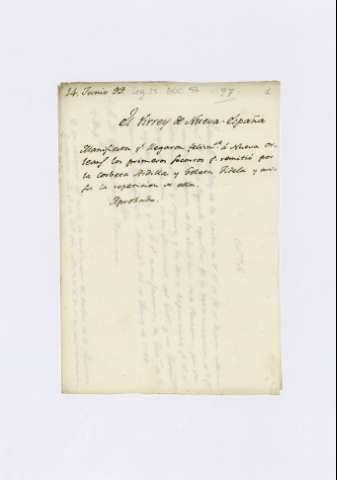 14. Junio 99. Leg 15 Doc 52 97
El Virrey de Nueva España
Manifiesta q.e llegaron felizm.te á Nueva Or
leans los primeros socorros q.e remitió por
la corbeta Ardilla y Goleta Fidela y avi-
sa la repeticion de otro.
Aprobado.